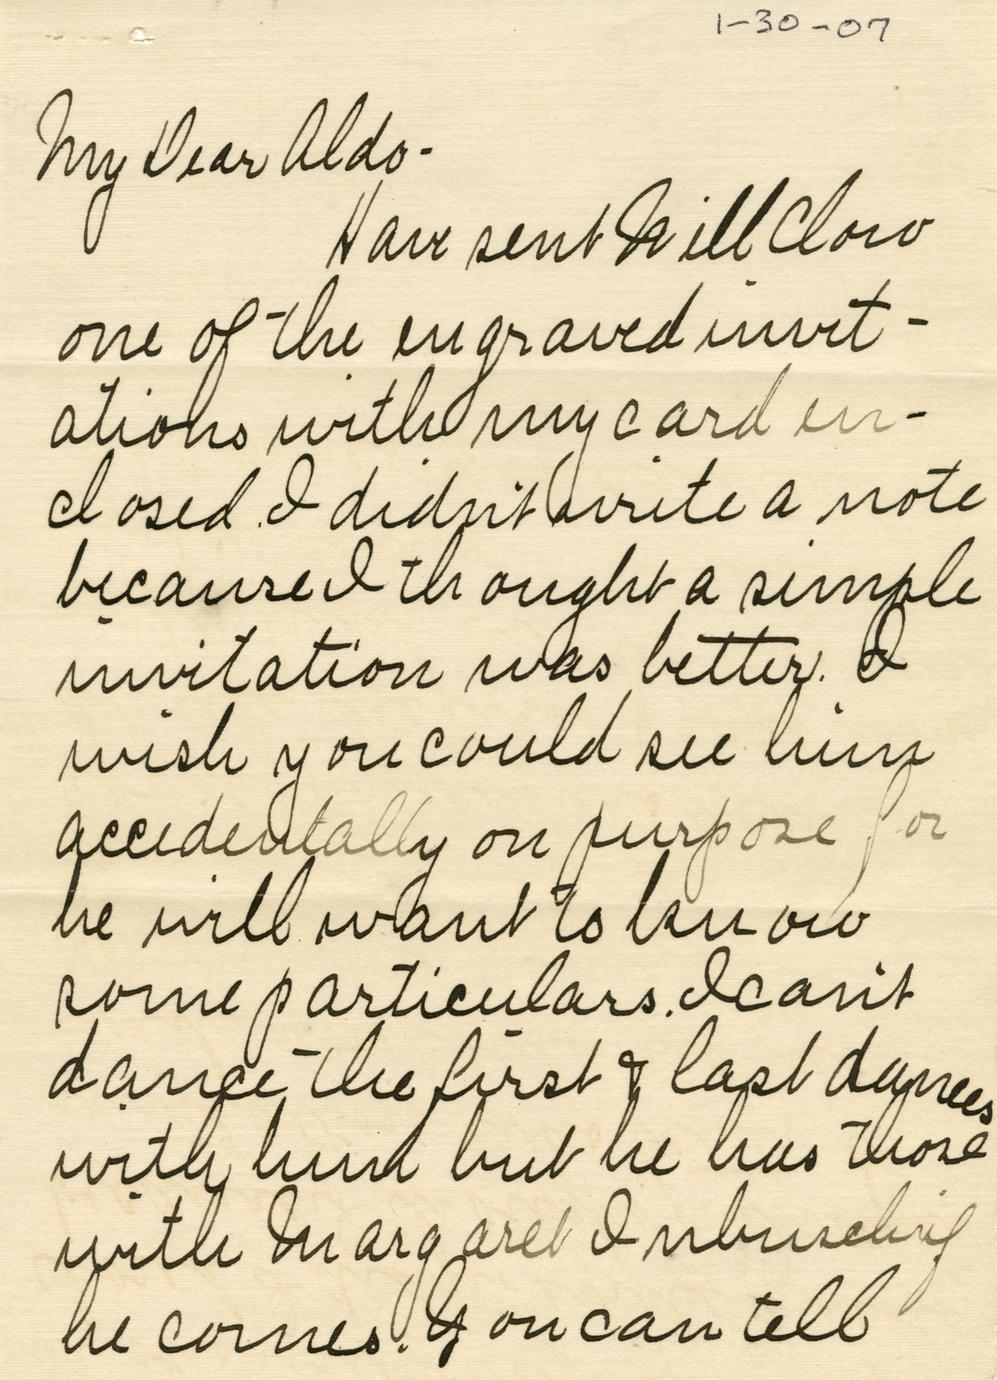 1-30-07
My Dear Aldo-
Have sent Will Clow
one of the engraved invit-
ations with my card en-
closed. I didn't write a note
because I thought a simple
invitation was better. I
wish you could see him
accidentally on purpose for
he will want to know
some particulars. I can't
dance the first & last dances
with him but he has those
with Margaret Inbusch if
he comes. You can tell